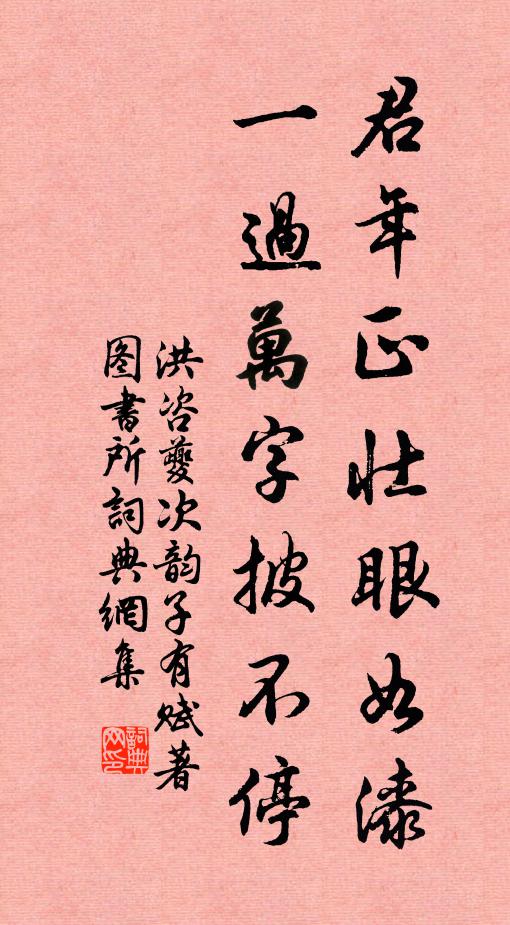 君年正壯眼如漆
一過萬字披不停
洪咨夔次韵子有赋著
图書所詞典網集
詞典网印